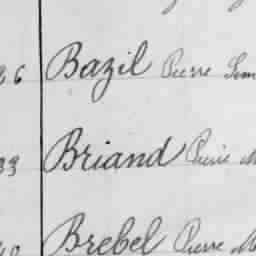 26 Bazil Pierre
33 Briand Pierre
Brebel Pierre